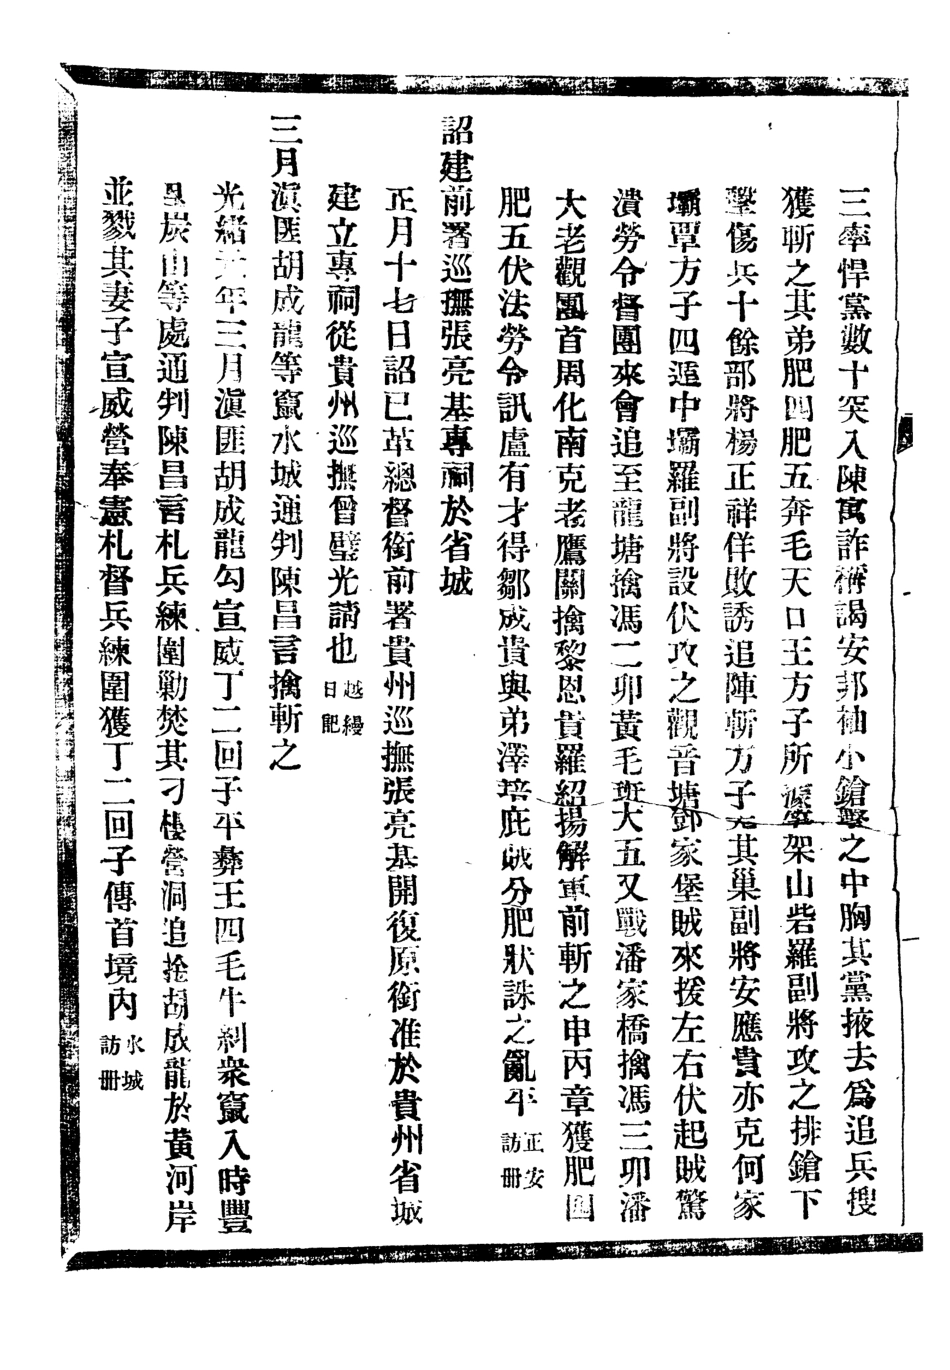 三率悍黨數十突入陳寓詐稱謁安邦袖小鎗擊之中胸其黨掖去爲追兵搜
獲斬之其弟肥四肥五奔毛天口王方子所據架山砦羅副將攻之排鎗下
擊傷兵十餘部將楊正祥佯敗誘追陣斬方子克其巢副將安應貴亦克何家
壩覃方子四遁中壩羅副將設伏攻之觀音塘鄧家堡賊來援左右伏起賊驚
潰勞令督團來會追至龍塘擒馮二卯黃毛班大五又戰潘家橋擒馮三卯潘
大老觀團首周化南克老鷹關擒黎恩貴羅紹揚解軍前斬之申丙章獲肥四
肥五伏法勞令訊盧有才得鄒成貴與弟澤培庇賊分肥狀誅之亂平正安訪冊
詔建前署巡撫張亮基專祠於省城
正月十七日詔已革總督銜前署貴州巡撫張亮基開復原銜准於貴州省城
建立專祠從貴州巡撫曾璧光請也越縵日記
三月滇匪胡成龍等竄水城通判陳昌言擒斬之
光緒元年三月滇匪胡成龍勾宣威丁二回子平彝王四毛牛糾衆竄入時豐
里炭山等處通判陳昌言札兵練圍勦焚其刁樓營洞追捦胡成龍於黃河岸
並戮其妻子宣威營奉憲札督兵練圍獲丁二回子傳首境內水城訪冊